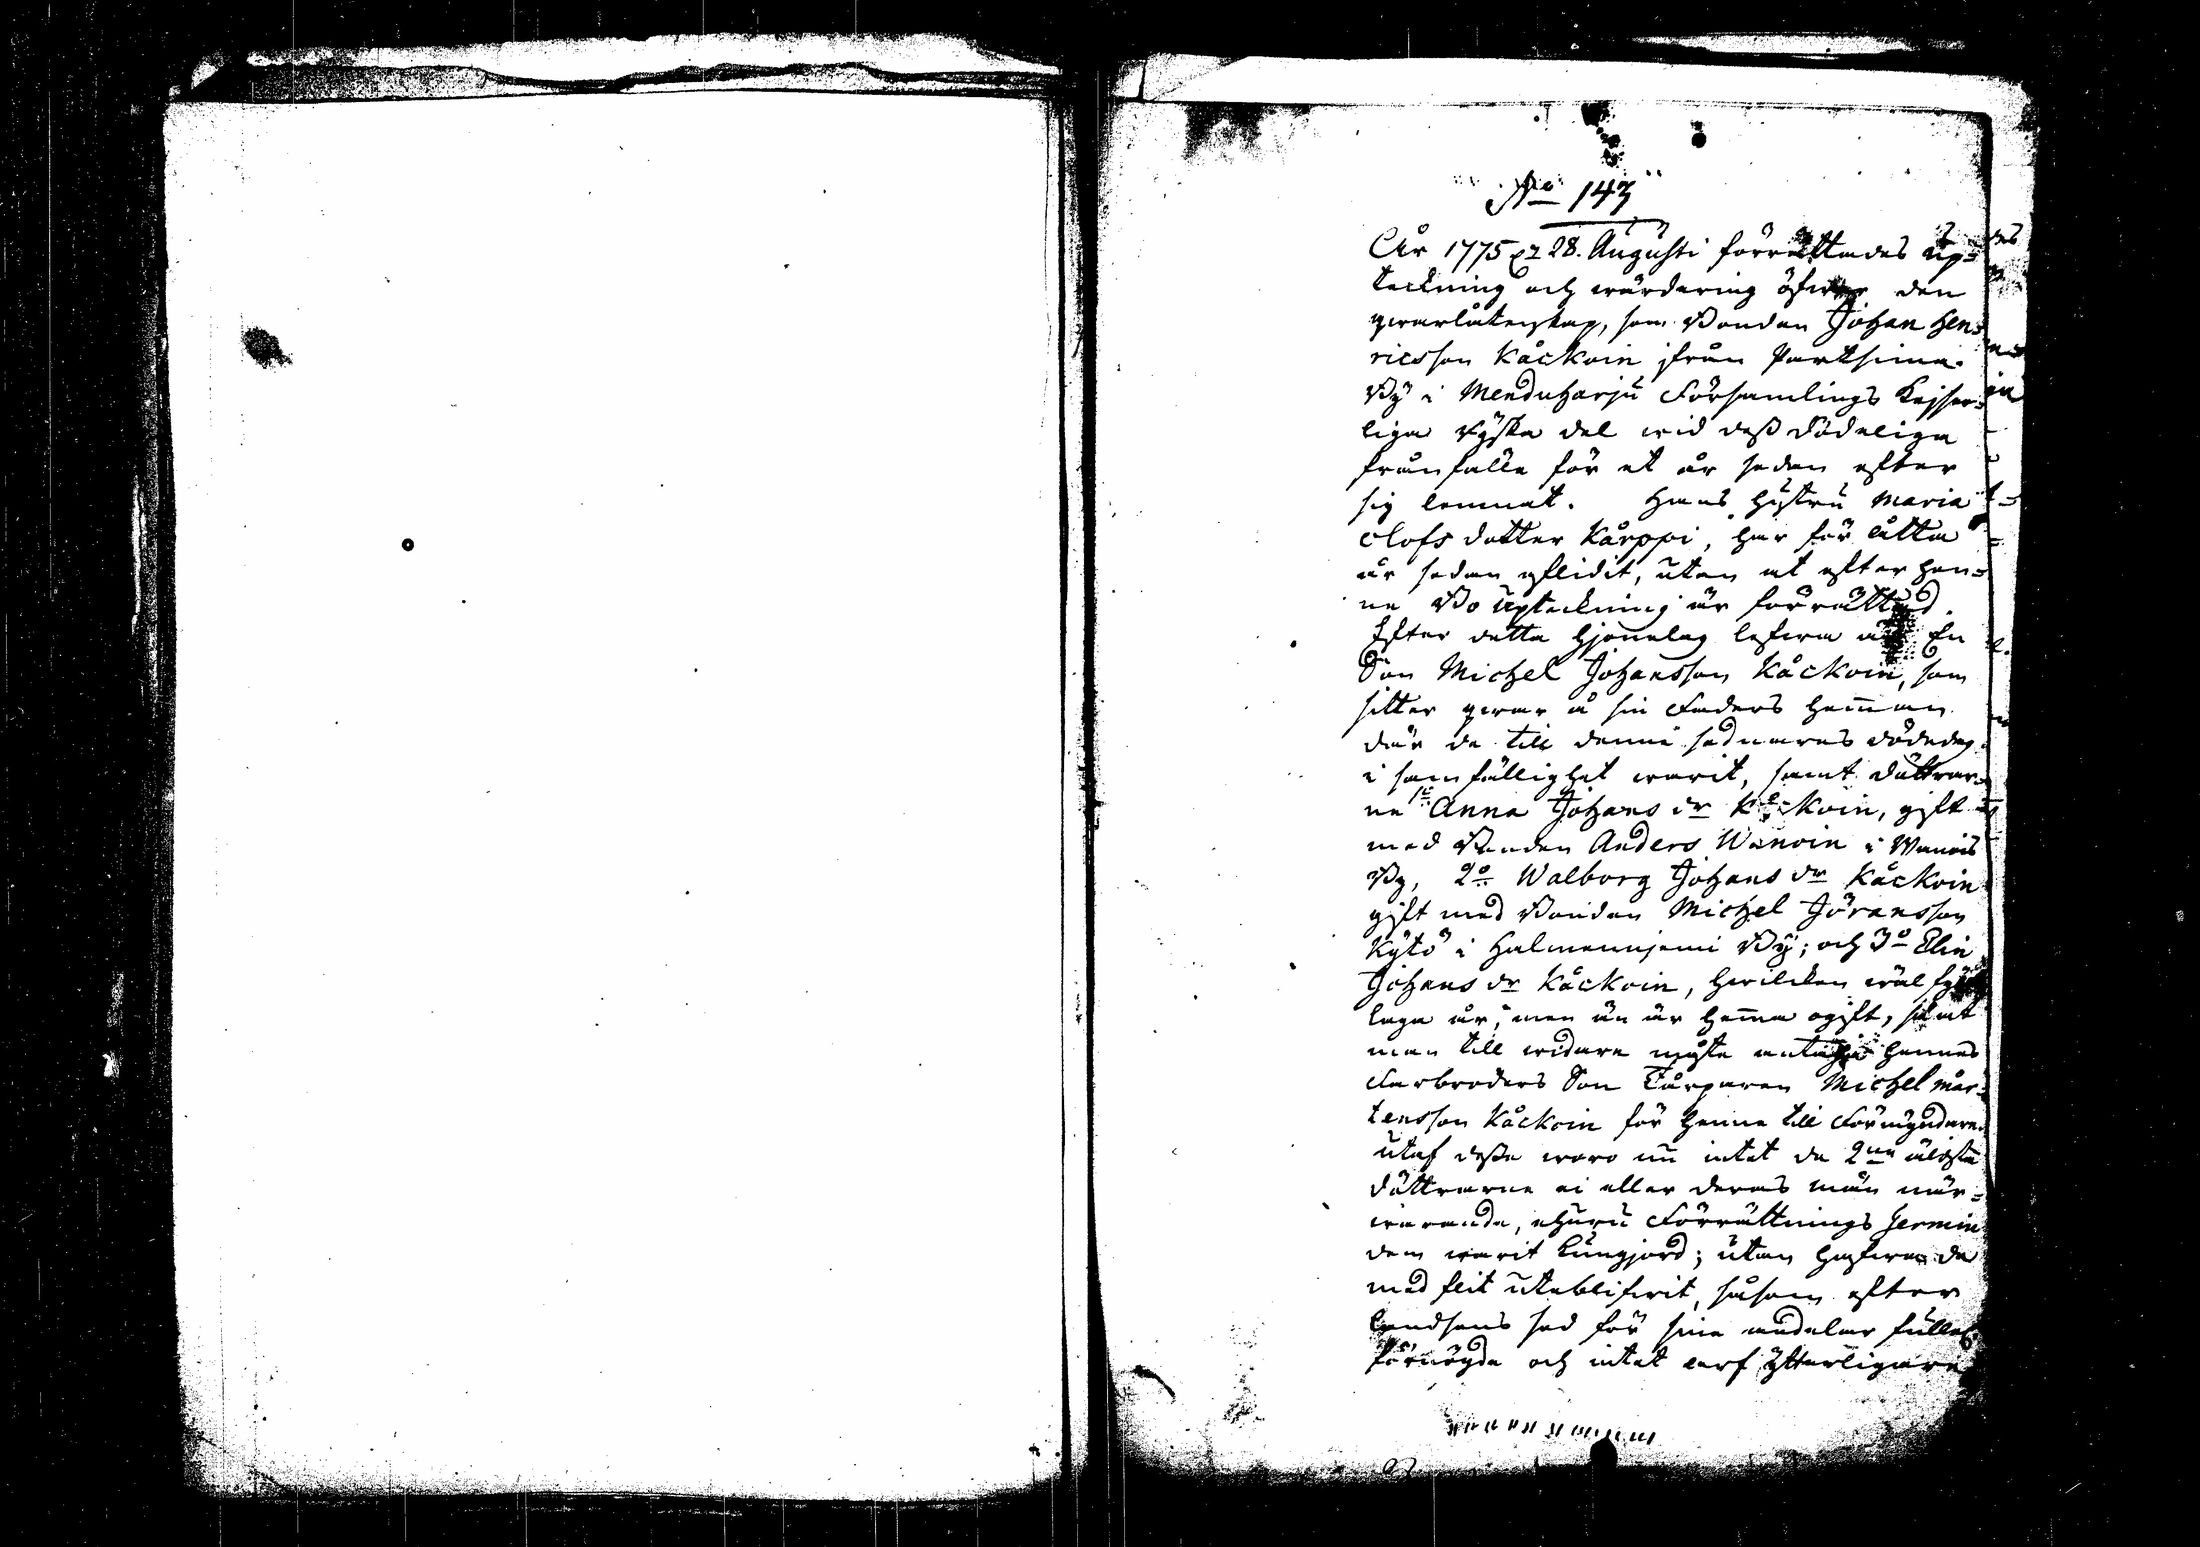 No 143
År 1775 d 28. Augusti förrättades up=
teckning och wärdering öfwer den
qwarlåtenskap, som Bonden Johan Hen=
ricsson Kåckoin ifrån Partsima
By i Menduharju Församlings Kejser=
liga Ryska del wid dess dödeliga
frånfälle för et år sedan efter
sig lemnat. Hans Hustru Maria
Olofs dotter Kårppi, har för åtta
år sedan aflidit, utan at efter hen=
ne Bo Upteckning är förrättad.
Efter detta Hjonelag lefwa att En
Son Michel Johansson Kåckoin, som
sitter qwar å sin Faders Hemman
där de till denne sednares dödedag
i samfällighet warit, samt döttrar=
ne 1o Anna Johans dr Kåckoin, gift
med Bonden Anders Wanoin i Wanois
By, 2o Walborg Johans dr Kåckoin
gift med Bonden Michel Jöransson
Kytö i Halmenniemi By; och 3o Elin
Johans dr Kåckoin, hwilcken wäl fylt
laga år, men än är hemma ogift, så at
man till widare måste antaga hennes
Farbroders Son Torparen Michel Mår=
tensson Kåckoin för henne till Förmyndare.
Utaf desse woro nu intet de 2ne äldsta
döttrarne ei eller deras män när=
warande, ehuru Förrättnings Termin
dem warit kungjord; utan hafwa de
med flit uteblifwit, såsom efter
landsens sed för sine andelar fulle
förnögde och intet arf ytterligare